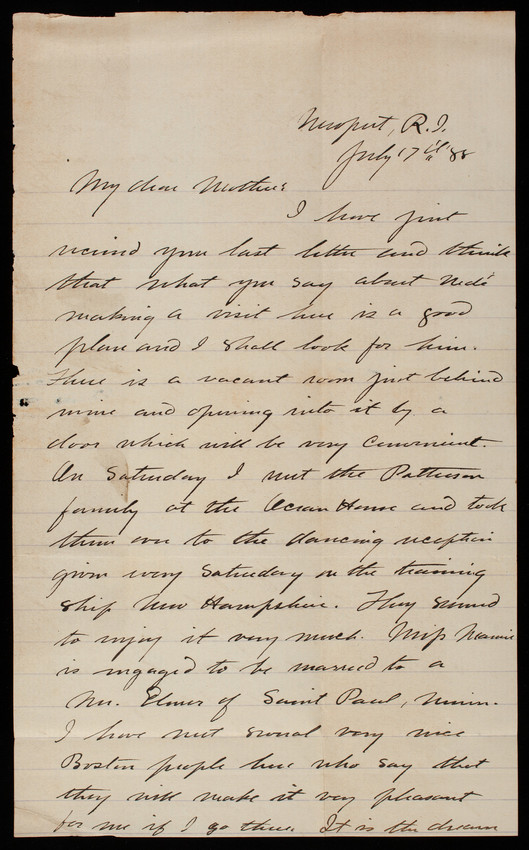 Newport, R.I.
July 17th '88
My dear Mother:
I have just
received your last letter and think
that what you say about Ned's
making a visit here is a good
plan and I shall look for him.
There is a vacant room just behind
mine and opening into it by a
door which will be very convenient.
On Saturday I met the Patterson
family at the Ocean House and took
them over to the dancing reception
given every Saturday on the training
ship New Hampshire. They seemed
to enjoy it very much. Miss Mamie
is engaged to be married to a
Mr. Elmer of Saint Paul, Minn.
I have met several very nice
Boston people here who say that
they will make it very pleasant
for me if I go there. It is the dream